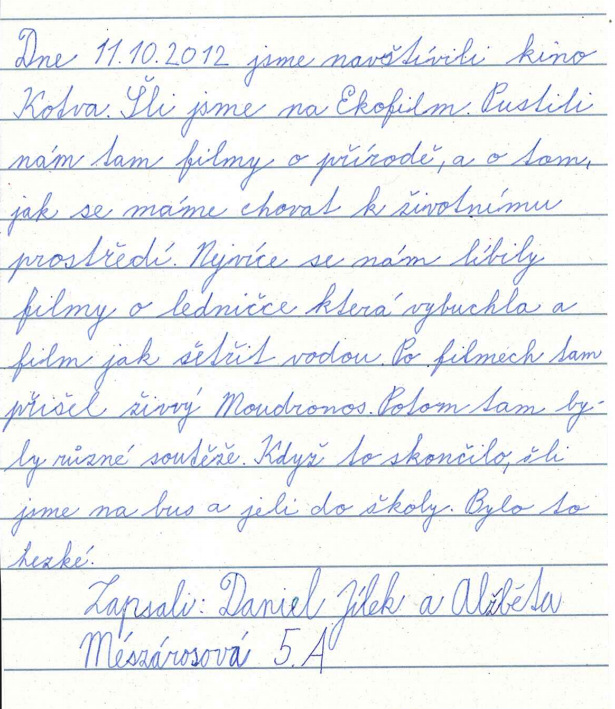 Dne 11.10.2012 jsme navštívili kino
Kotva. Šli jsme na Ekofilm. Pustili
nám tam filmy o přírodě, a o tom,
jak se máme chovat k životnímu
prostředí. Nejvíce se nám líbily
filmy o ledničce která vybuchla a
film jak šetřit vodou. Po filmech tam
přišel živý Moudronos. Potom tam by-
ly různé soutěže. Když to skončilo, šli
jsme na bus a jeli do školy. Bylo to
hezké.
Zapsali: Daniel Jílek a Alžběta
Mészárosová 5.A